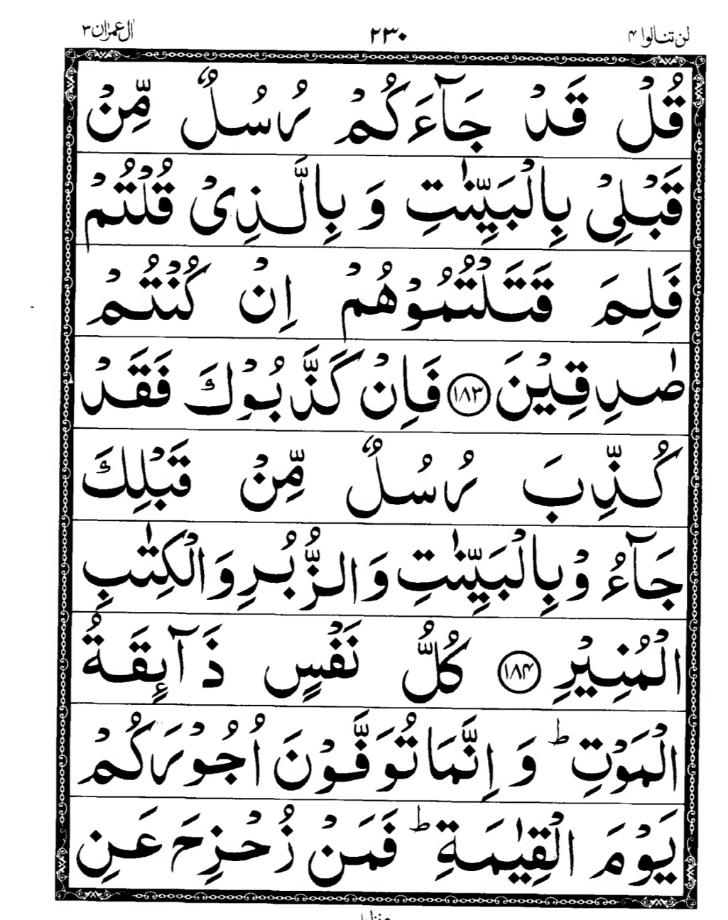 لن تنالوا ۴ ۲۳۰ اٰل عمرٰن ۳
قُلْ قَدْ جَآءَكُمْ رُسُلٌ مِّنْ
قَبْلِيْ بِالْبَيِّنٰتِ وَ بِالَّذِيْ قُلْتُمْ
فَلِمَ قَتَلْتُمُوْهُمْ اِنْ كُنْتُمْ
صٰدِقِيْنَ ﴿۱۸۳﴾ فَاِنْ كَذَّبُوْكَ فَقَدْ
كُذِّبَ رُسُلٌ مِّنْ قَبْلِكَ
جَآءُ وْبِالْبَيِّنٰتِ وَالزُّبُرِ وَالْكِتٰبِ
الْمُنِيْرِ ﴿۱۸۴﴾ كُلُّ نَفْسٍ ذَآىِٕقَةُ
الْمَوْتِ ؕ وَ اِنَّمَا تُوَفَّوْنَ اُجُوْرَكُمْ
يَوْمَ الْقِيٰمَةِ ؕ فَمَنْ زُحْزِحَ عَنِ